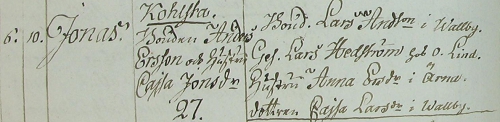 Kohlsta.
6. 10. Jonas.
Bonden Anders
Ersson och Hustrun
Cajsa Jonsdr
27.
Bond. Lars Andsson i Wallby.
Gef. Lars Hedström och O. Lind.
Hustrun Anna Ersdr i Ärna.
dottren Cajsa Larsdr i Wallby.